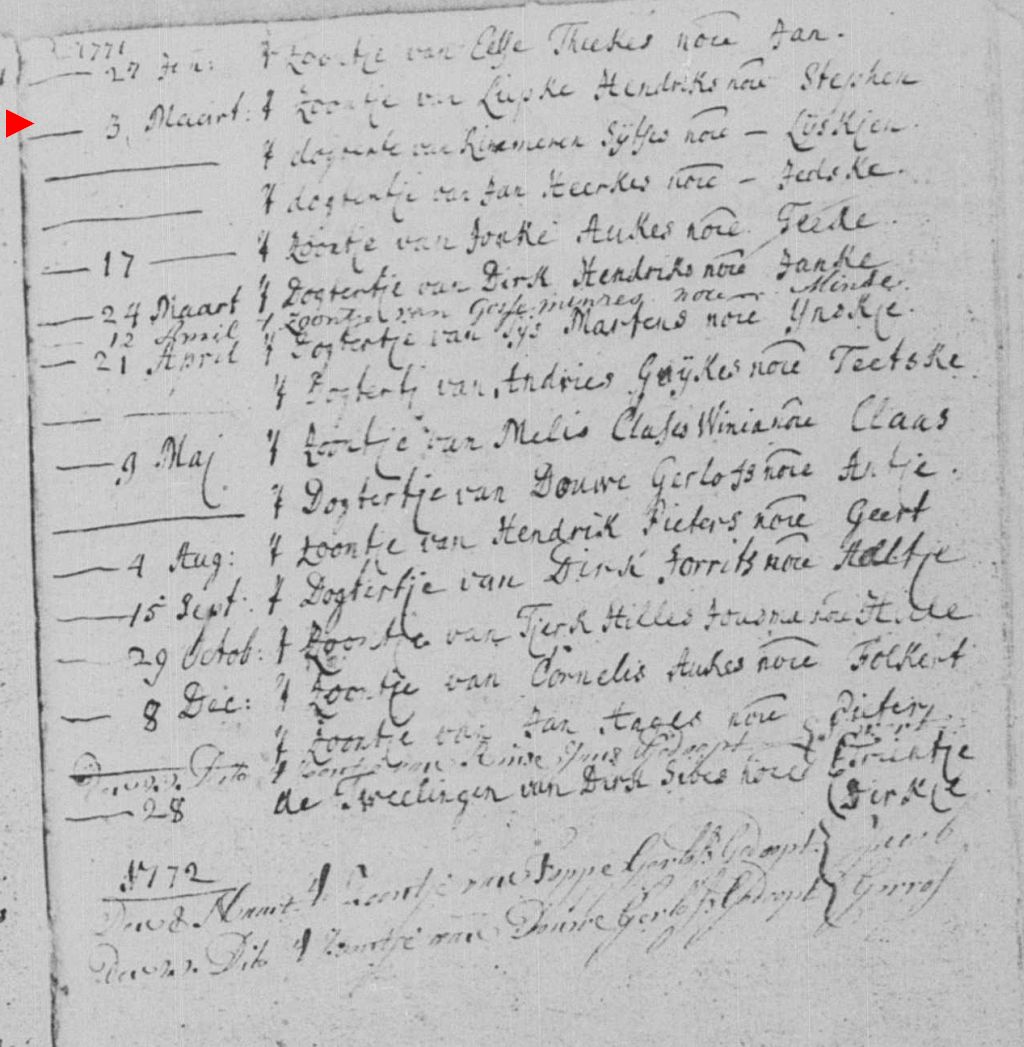 1771
27 Jan: 't Zoontje van Eelse Thiekes noie Jan.
3 Maart: 't Zoontje van Liepke Hendriks noie Stephen
't dogterte van Rimmeren Sijtses noie — Lijskjen.
't dogtertje van Jan Heerkes noie — Jedske.
17 — 't Zoontje van Jouke Aukes noie Teede.
24 Maart 't Dogtertje van Dirk Hendriks noie Janke
12 April 't Zoontje van Gosse noie Minde.
21 April 't Dogtertje van Sijs Martens noie Ynskje.
't Dogtertj van Andries noie Teetske
9 Maj 't Zoontje van Melis Clases Winia noie Claas
't Dogtertje van Douwe Gerlofs noie Antje.
4 Aug: 't Zoontje van Hendrik Pieters noie Geert
15 Sept: 't Dogtertje van Dirk Jorrits noie Aeltje
29 Octob: 't Zoontje van Tjerk Hilles Jousma noie Hille
8 Dec: 't Zoontje van Cornelis Aukes noie Folkert
't Zoontje van Jan Anges noie Pieter
Den Dito 't Zoontje van Rinse Gedoopt
28 de Tweelingen van Dirk Sibes noie Trientje
Dirkje
1772
Den 8 Maart 't Zoontje van Foppe Gerlofs Gedoopt Jacob
Den 22 Dito 't Zoontje van Douwe Gerlofs Gedoopt